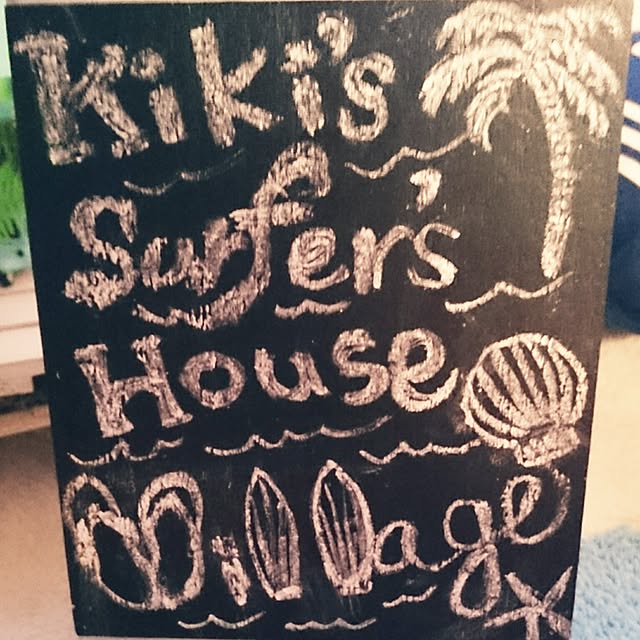 Kiki's
Surfer's
House
Village